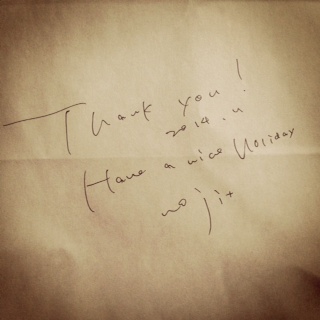 Thank you!
2014.11
Have a nice Holiday
nojit